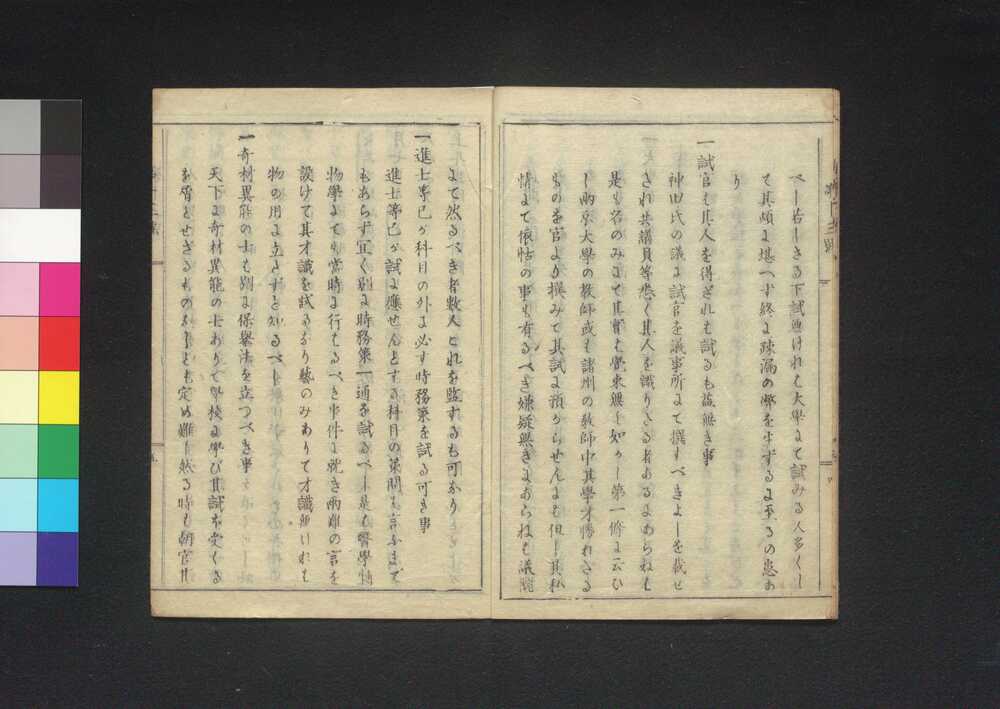 べし若しきる下試無ければ大學にて試みる人多くし
て其煩に堪へず終に疎漏の弊を生ずるに至るの患あ
り
一試官も其人を得ざれば試るも益無き事
神田氏の議に試官を議事所にて撰すべきよしを載せ
され共議員等悉く其人を識りさる者あるにあらねば
是も名のみにて其實も覺束無し如かじ第一條に云ひ
し兩京大學の敎師或は諸州の敎師中其學才勝れたる
ものを官より撰みて其試に預からせんには但し其私
情にて依怙の事も有るべき嫌疑無きにあらねば議院
にて然るべき者數人これを監するも可なり
一進士等已が科目の外に必す時務策を試る可き事
進士等已が試に應せんとする科目の策問は言ふまで
もあらず宜く別に時務策一通を試るべし是も醫學博
物學にても當時に行はるべき事件に就き兩難の言を
設けて其才識を試るなり藝のみありて才識無ければ
物の用に立たずと知るべし
一奇材異能の士も別に保擧法を立つべき事
天下に奇材異能の士ありて學校に學び其試を受くる
を屑とせざるものあらんも定め難し然る時も朝官并